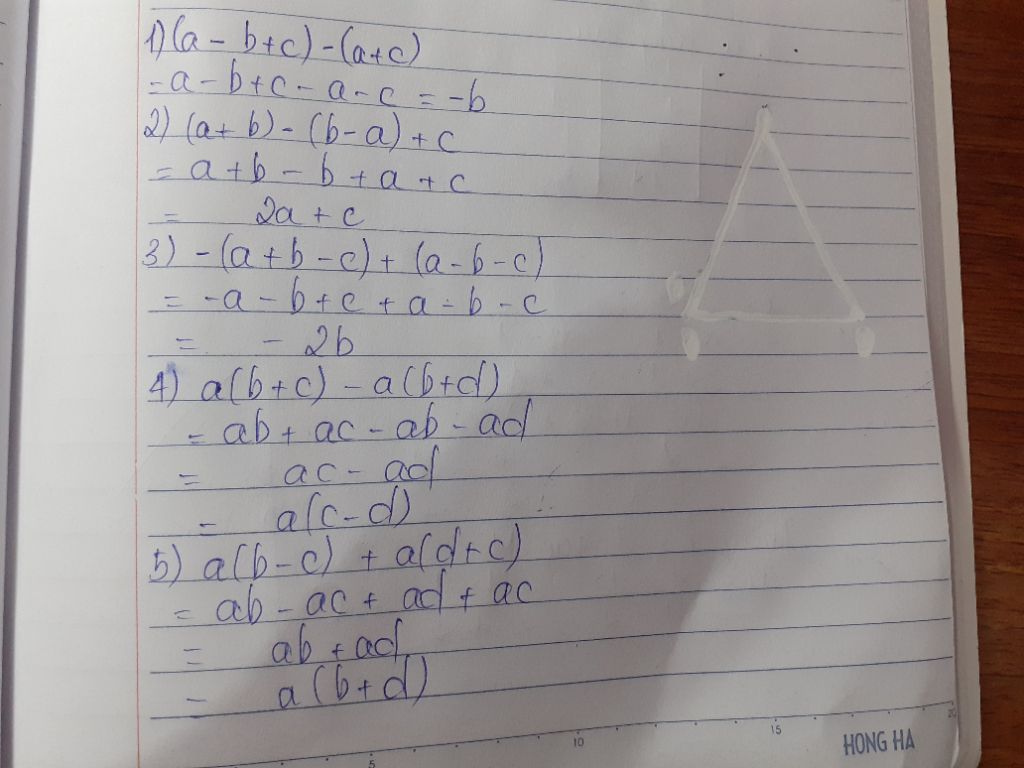 1) (a - b + c) - (a + c)
= a - b + c - a - c = -b
2) (a + b) - (b - a) + c
= a + b - b + a + c
= 2a + c
3) - (a + b - c) + (a - b - c)
= -a - b + c + a - b - c
= - 2b
4) a(b + c) - a(b + d)
= ab + ac - ab - ad
= ac - ad
= a(c - d)
5) a(b - c) + a(d + c)
= ab - ac + ad + ac
= ab + ad
= a(b + d)
5 10 15 20
HONG HA